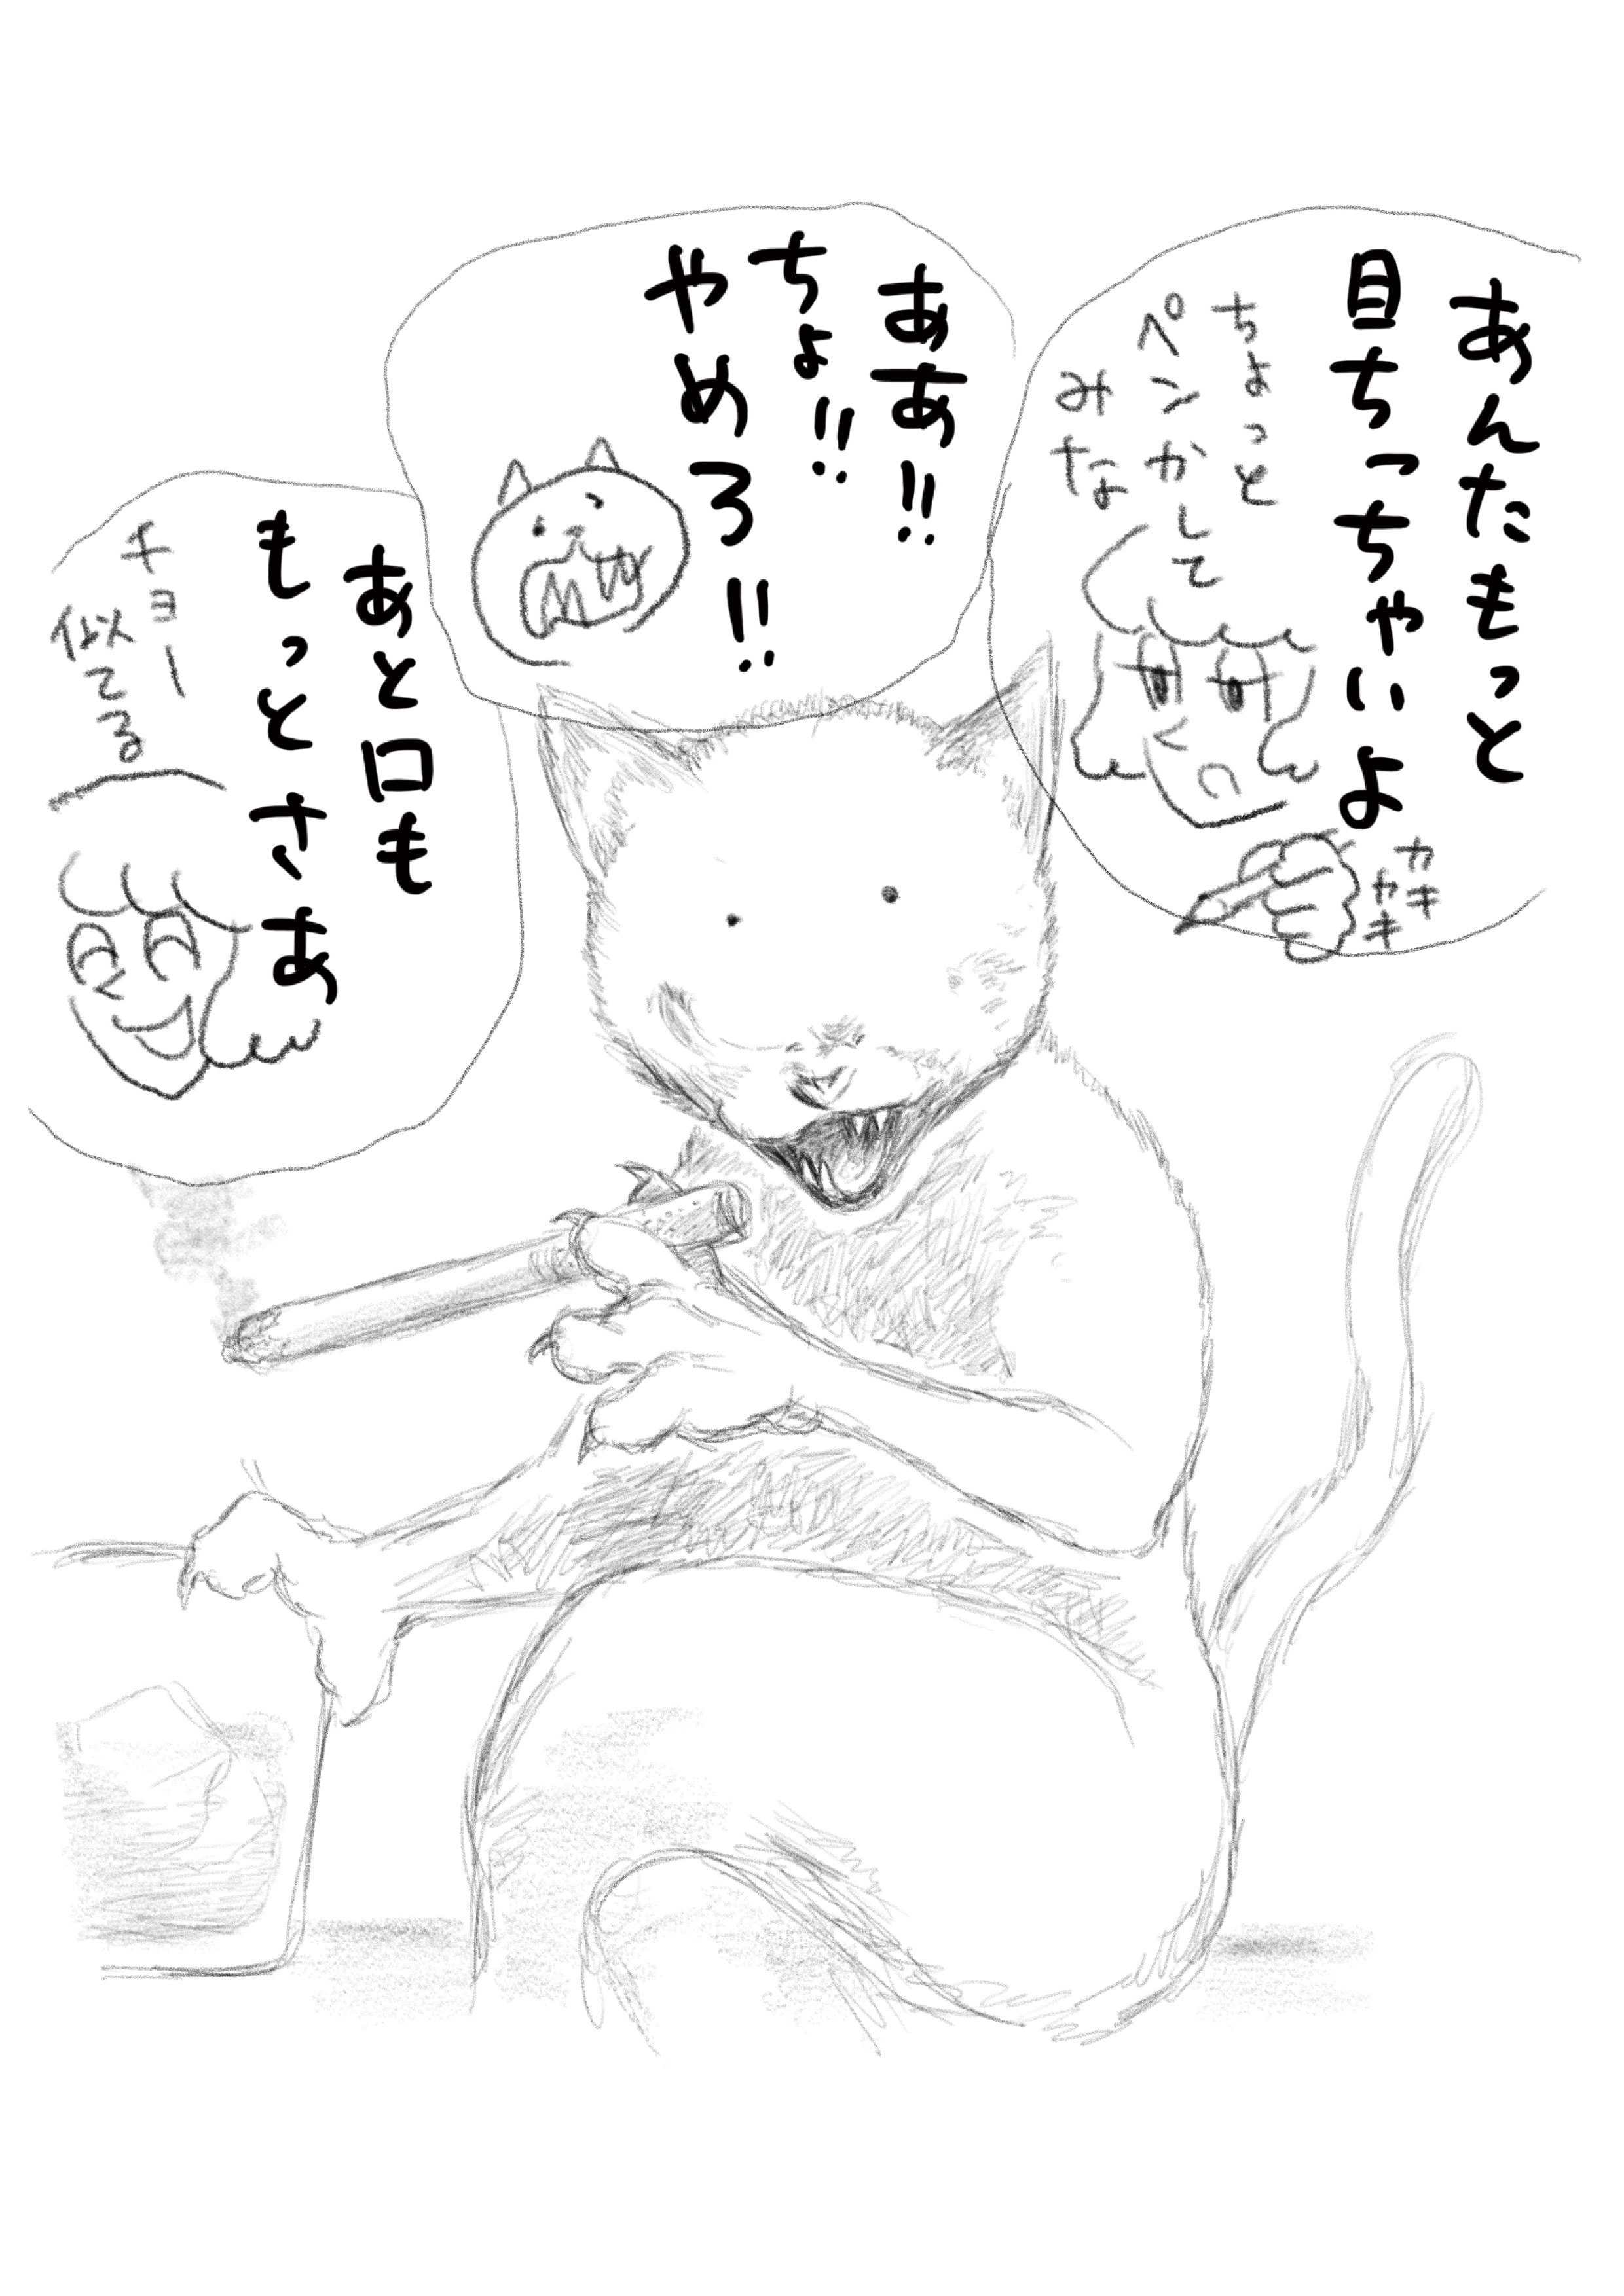 あんたもっと
目ちっちゃいよ
ちょっと
ペンかして
みな
カキ
ャキ
ああ!!
ちょ!!
やめろ!!
あと口も
もっとさあ
チョー
似てる